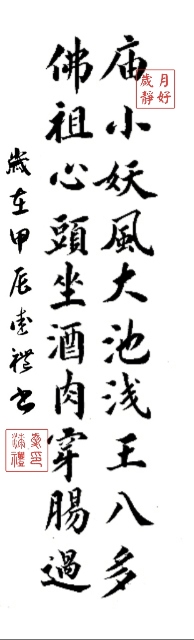 庙小妖風大池浅王八多
佛祖心頭坐酒肉穿腸過
歲在甲辰惠禮书
月好
歲靜